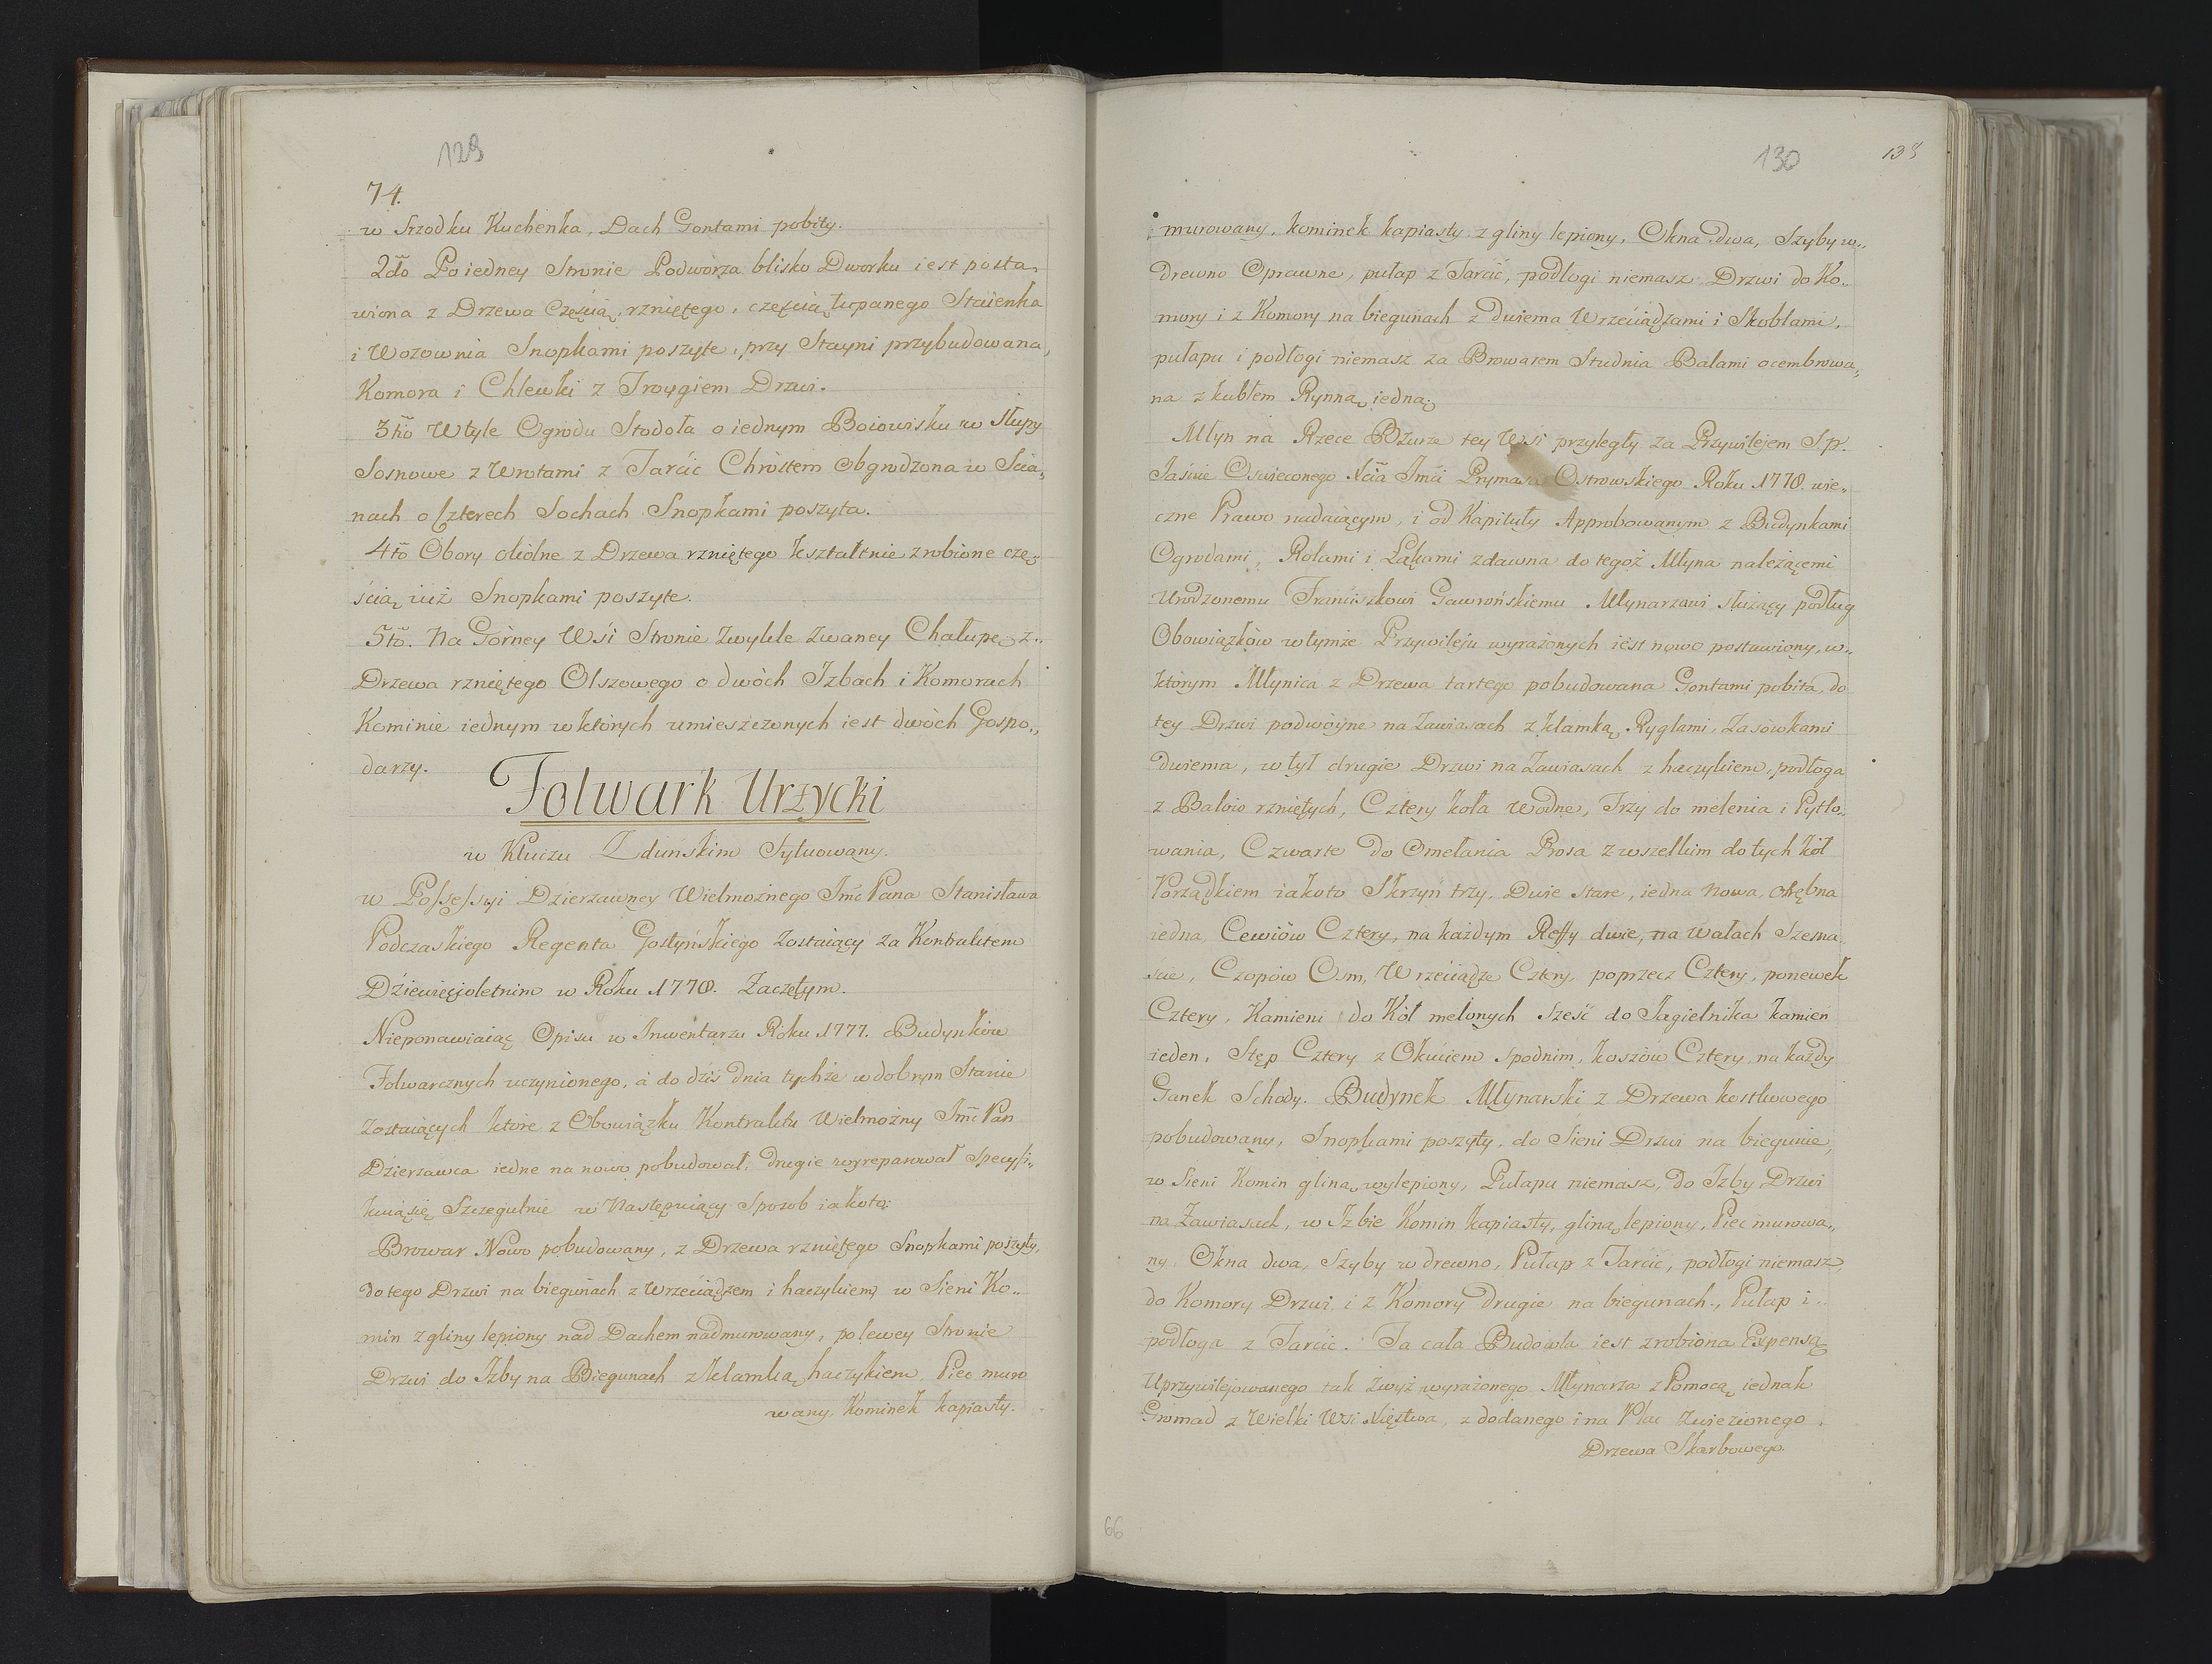 129
74.
w Srzodku Kuchenka, Dach Gontami pobity.
2do Po iedney Stronie Podworza blisko Dworku iest posta„
wiona z Drzewa Częścią rzniętego, częścią łupanego Staienka
i Wozownia Snopkami poszyte, przy Stayni przybudowana,
Komora i Chlewki z Troygiem Drzwi.
3tio W tyle Ogrodu Stodoła o iednym Boiowisku w Słupy
Sosnowe z Wrotami z Tarcic Chróstem obgrodzona w Scia„
nach o Czterech Sochach Snopkami poszyta.
4to Obory okólne z Drzewa rzniętego kształtnie zrobione czę„
ścią iuż Snopkami poszyte.
5to. Na Górney Wsi Stronie zwykle zwaney Chałupę z„
Drzewa rzniętego Olszowego o dwóch Izbach i Komorach
Kominie iednym w których umieszczonych iest dwóch Gospo„
darzy.
Folwark Urzycki
w Kluczu Zduńskim Sytuowany.
w Possessyi Dzierzawney Wielmożnego Jmć Pana Stanisława
Podczaskiego Regenta Gostyńskiego zostaiący za Kontraktem
Dziewięcioletnim w Roku 1778. Zaczętym.
Nieponawiaiąc Opisu w Inwentarzu Roku 1777. Budynków
Folwarcznych uczynionego, á do dziś dnia tychże w dobrym Stanie
zostaiących które z Obowiązku Kontraktu Wielmożny Jmć Pan
Dzierzawca iedne na nowo pobudował, drugie wyreparował Specyfi„
kuią się Szczegulnie w Następuiący Sposob iakoto:
Browar Nowo pobudowany, z Drzewa rzniętego Snopkami poszyty,
do tego Drzwi na biegunach z wrzeciądzem i haczykiem, w Sieni Ko„
min z gliny lepiony nad Dachem nadmurowany, po lewey Stronie
Drzwi do Izby na Biegunach z klamką, haczykiem, Piec muro
wany, Kominek kapiasty.
130
murowany, kominek kapiasty z gliny lepiony, Okna dwa, Szyby w„
drewno Oprawne, pułap z Tarcic, podłogi niemasz Drzwi do Ko„
mory i z Komory na biegunach z dwiema Wrzeciądzami i Skoblami,
pułapu i podłogi niemasz za Browarem Studnia Balami ocembrowa„
na z kubłem Rynną iedną.
Młyn na Rzece Bzurze tey Wsi przyległy za Przywilejem S. p.
Jaśnie Oświeconego Xcia Jmci Prymasa Ostrowskiego Roku 1778. wie„
czne Prawo nadaiącym, i od Kapituły Approbowanym z Budynkami
Ogrodami, Rolami i Łąkami zdawna do tegoż Młyna należącemi
Urodzonemu Franciszkowi Gawrońskiemu Młynarzowi służący podług
Obowiązków w tymże Przywileju wyrażonych iest nowo postawiony, w„
którym Młynica z Drzewa tartego pobudowana Gontami pobita, do
tey Drzwi podwóyne na Zawiasach z klamką, Ryglami, Zasówkami
dwiema, w tył drugie Drzwi na Zawiasach z haczykiem, podłoga
z Balow rzniętych, Cztery koła wodne, Trzy do mełenia i Pytlo„
wania, Czwarte do Omełania Prosa z wszelkim do tych kół
Porządkiem iakoto Skrzyń trzy, Dwie stare, iedna nowa, otrębna
iedna, Cewiów Cztery, na każdym Reffy dwie, na Wałach Szesna„
ście, Czopów Osm, Wrzeciądze Cztery, poprzecz Cztery, ponewek
Cztery, Kamieni do Kół melonych Sześć do Jagielnika kamień
ieden, Stęp Cztery z Okuciem spodnim, koszów Cztery, na każdy
Ganek Schody. Budynek Młynarski z Drzewa kostkowego
pobudowany, Snopkami poszyty, do Sieni Drzwi na biegunie,
w Sieni Komin gliną wylepiony, Pułapu niemasz, do Izby Drzwi
na Zawiasach, w Izbie Komin kapiasty, gliną lepiony, Piec murowa„
ny, Okna dwa, Szyby w drewno, Pułap z Tarcic, podłogi niemasz,
do Komory Drzwi, i z Komory drugie na biegunach, Pułap i„
podłoga z Tarcic. Ta cała Budowla iest zrobiona Expensą
Uprzywilejowanego tak zwyż wyrażonego Młynarza z Pomocą iednak
Gromad z Wielki Wsi Xięstwa, z dodanego i na Plac Zwiezionego
Drzewa Skarbowego.
66